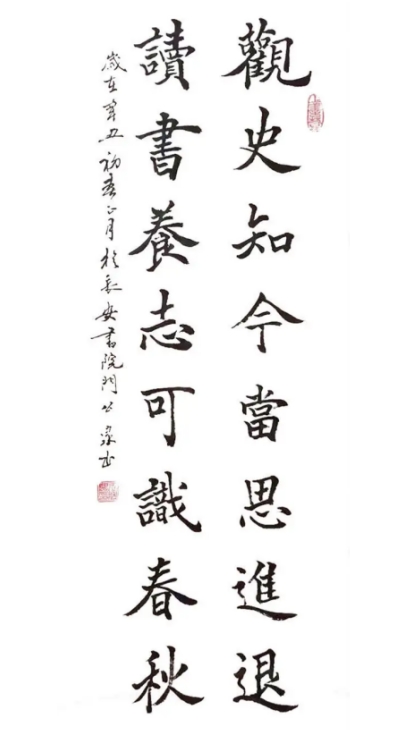 觀史知今當思進退
讀書養志可識春秋
歲在辛丑初春正月於長安書院門公泉書